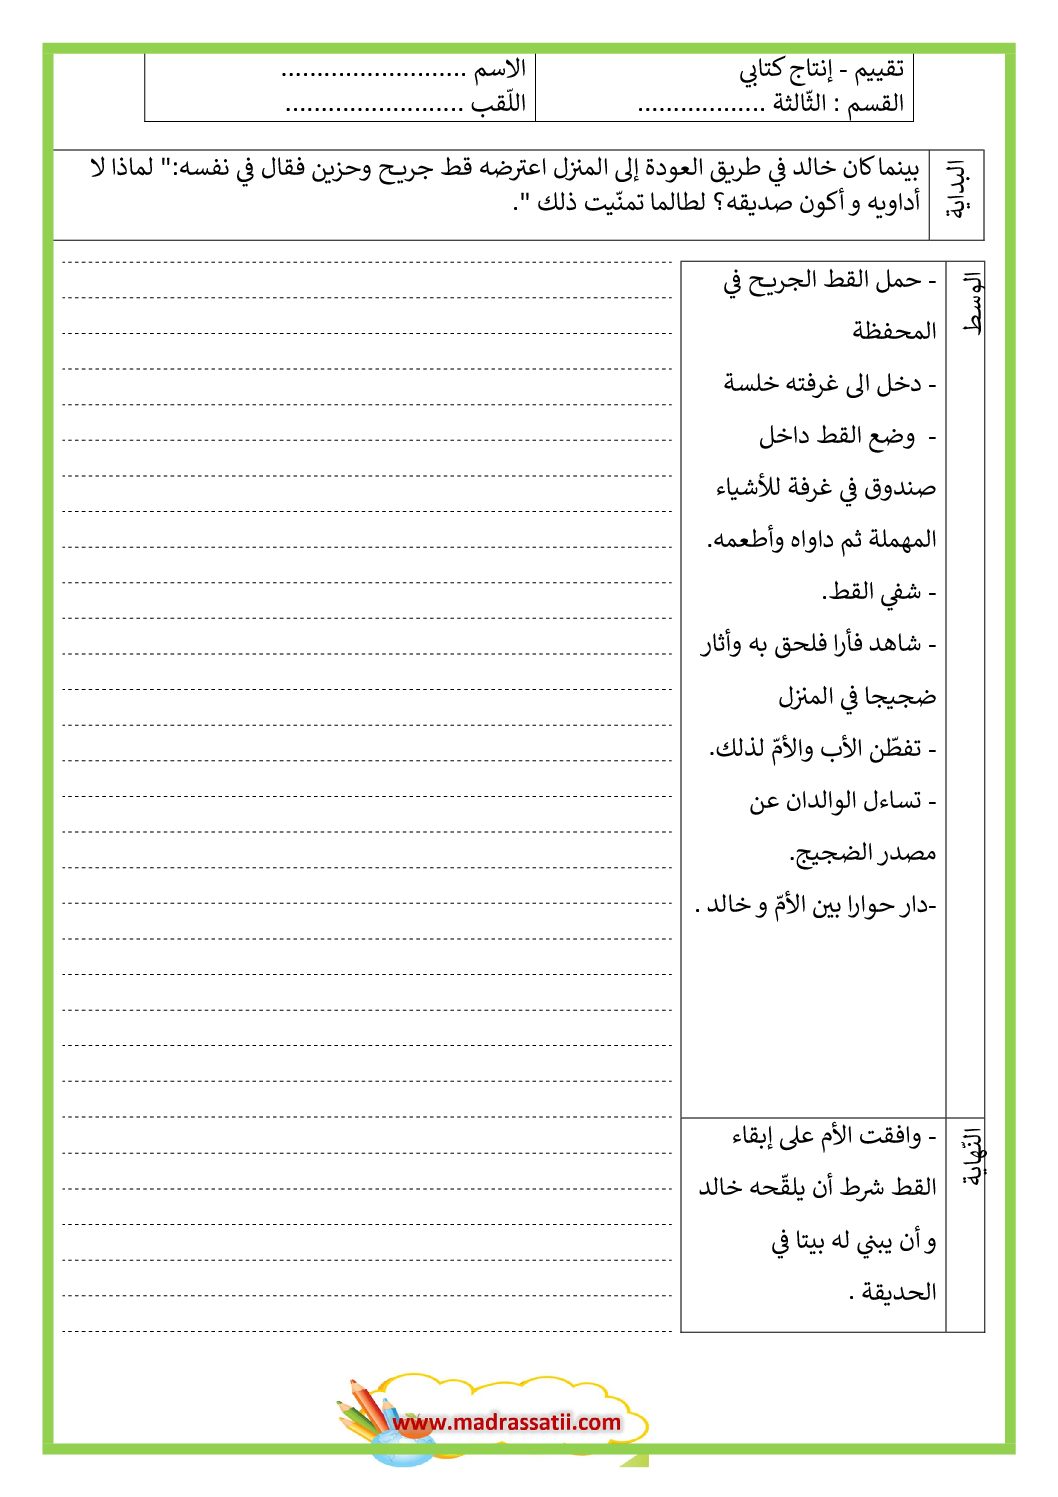 تقييم - إنتاج كتابي
القسم : الثّالثة ..................
الاسم ..........................
اللّقب .........................
البداية
بينما كان خالد في طريق العودة إلى المنزل اعترضه قط جريح وحزين فقال في نفسه:" لماذا لا
أداويه و أكون صديقه؟ لطالما تمنّيت ذلك ".
الوسط
- حمل القط الجريح في
المحفظة
- دخل الى غرفته خلسة
- وضع القط داخل
صندوق في غرفة للأشياء
المهملة ثم داواه وأطعمه.
- شفي القط.
- شاهد فأرا فلحق به وأثار
ضجيجا في المنزل
- تفطّن الأب والأمّ لذلك.
- تساءل الوالدان عن
مصدر الضجيج.
-دار حوارا بين الأمّ و خالد .
النّهاية
- وافقت الأم على إبقاء
القط شرط أن يلقّحه خالد
و أن يبني له بيتا في
الحديقة .
www.madrassatii.com